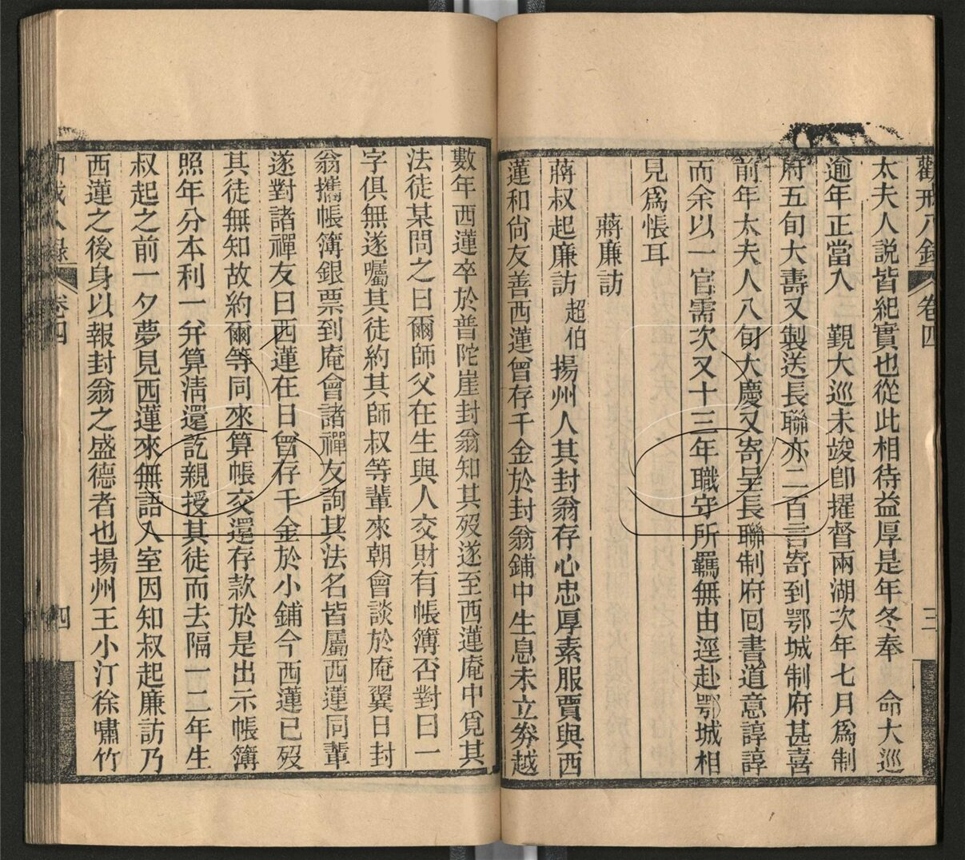 勸戒八錄 卷四 三
太夫人說皆紀實也從此相待益厚是年冬奉 命大巡
逾年正當入 覲大巡未竣卽擢督兩湖次年七月爲制
府五旬大壽又製送長聯亦二百言寄到鄂城制府甚喜
前年太夫人八旬大慶又寄呈長聯制府回書道意諄諄
而余以一官需次又十三年職守所羈無由逕赴鄂城相
見爲悵耳
蔣廉訪
蔣叔起廉訪超伯揚州人其封翁存心忠厚素服賈與西
蓮和尙友善西蓮曾存千金於封翁鋪中生息未立券越
數年西蓮卒於普陀崖封翁知其歿遂至西蓮庵中覓其
法徒某問之曰爾師父在生與人交財有帳簿否對曰一
字俱無遂囑其徒約其師叔等輩來朝會談於庵翼日封
翁攜帳簿銀票到庵會諸禪友詢其法名皆屬西蓮同輩
遂對諸禪友曰西蓮在日曾存千金於小鋪今西蓮已歿
其徒無知故約爾等同來算帳交還存款於是出示帳簿
照年分本利一幷算淸還訖親授其徒而去隔一二年生
叔起之前一夕夢見西蓮來無語入室因知叔起廉訪乃
西蓮之後身以報封翁之盛德者也揚州王小汀徐嘯竹
勸戒八錄 卷四 四